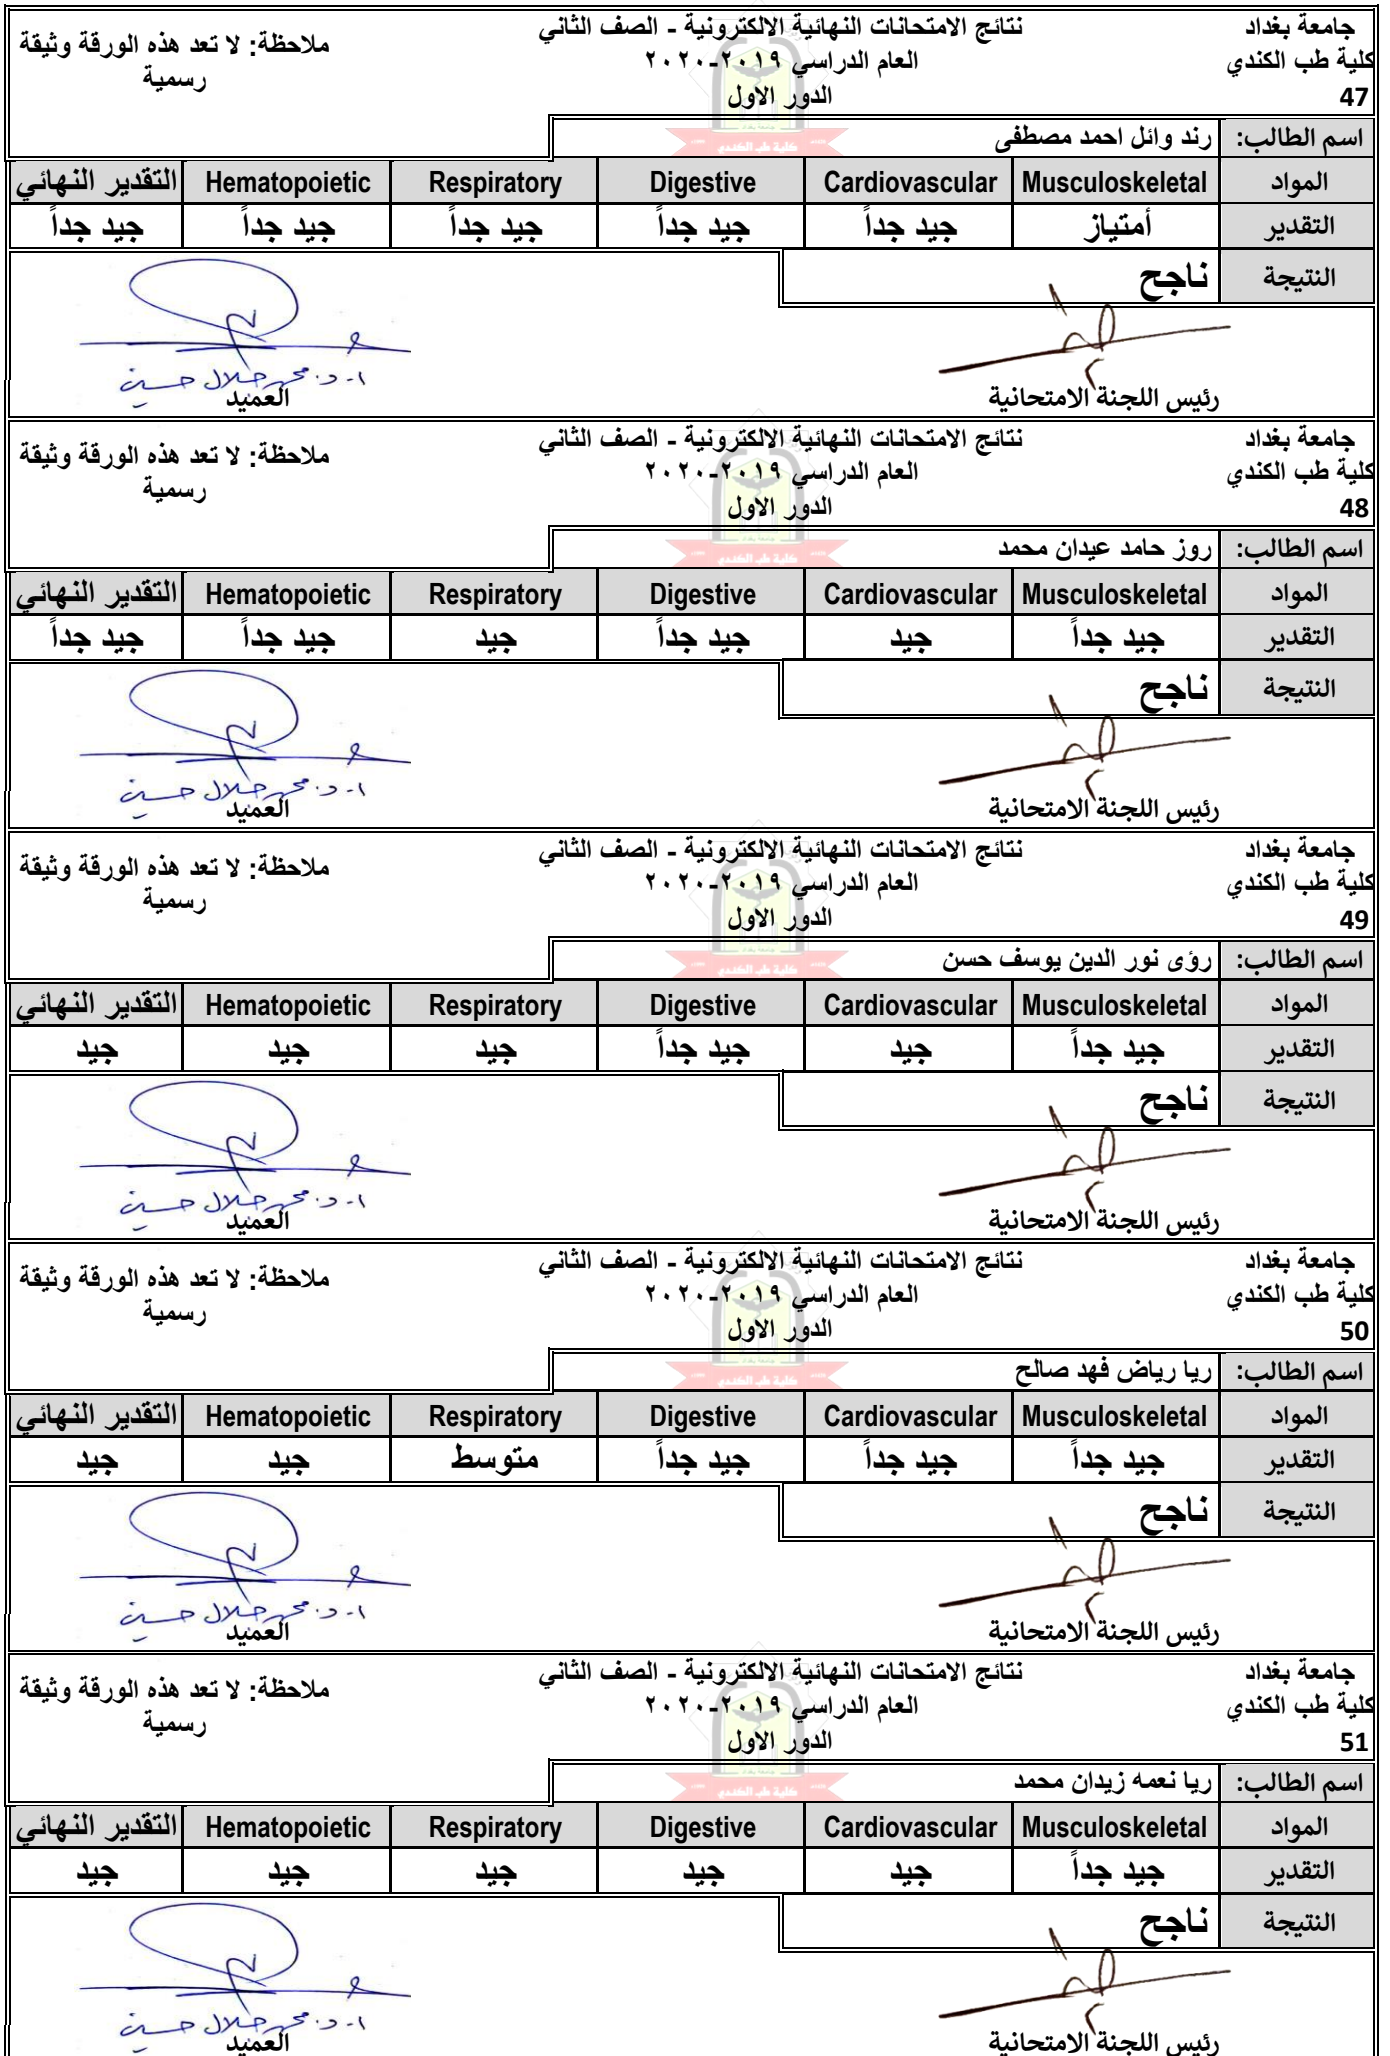 جامعة بغداد
كلية طب الكندي
47
نتائج الامتحانات النهائية الالكترونية - الصف الثاني
العام الدراسي ٢٠١٩-٢٠٢٠
الدور الاول
ملاحظة: لا تعد هذه الورقة وثيقة
رسمية
اسم الطالب: رند وائل احمد مصطفى
المواد Musculoskeletal Cardiovascular Digestive Respiratory Hematopoietic التقدير النهائي
التقدير أمتياز جيد جداً جيد جداً جيد جداً جيد جداً جيد جداً
النتيجة ناجح
رئيس اللجنة الامتحانية
ا. د. محمد جلال حسين
العميد
جامعة بغداد
كلية طب الكندي
48
نتائج الامتحانات النهائية الالكترونية - الصف الثاني
العام الدراسي ٢٠١٩-٢٠٢٠
الدور الاول
ملاحظة: لا تعد هذه الورقة وثيقة
رسمية
اسم الطالب: روز حامد عيدان محمد
المواد Musculoskeletal Cardiovascular Digestive Respiratory Hematopoietic التقدير النهائي
التقدير جيد جداً جيد جيد جداً جيد جيد جداً جيد جداً
النتيجة ناجح
رئيس اللجنة الامتحانية
ا. د. محمد جلال حسين
العميد
جامعة بغداد
كلية طب الكندي
49
نتائج الامتحانات النهائية الالكترونية - الصف الثاني
العام الدراسي ٢٠١٩-٢٠٢٠
الدور الاول
ملاحظة: لا تعد هذه الورقة وثيقة
رسمية
اسم الطالب: رؤى نور الدين يوسف حسن
المواد Musculoskeletal Cardiovascular Digestive Respiratory Hematopoietic التقدير النهائي
التقدير جيد جداً جيد جيد جداً جيد جيد جيد
النتيجة ناجح
رئيس اللجنة الامتحانية
ا. د. محمد جلال حسين
العميد
جامعة بغداد
كلية طب الكندي
50
نتائج الامتحانات النهائية الالكترونية - الصف الثاني
العام الدراسي ٢٠١٩-٢٠٢٠
الدور الاول
ملاحظة: لا تعد هذه الورقة وثيقة
رسمية
اسم الطالب: ريا رياض فهد صالح
المواد Musculoskeletal Cardiovascular Digestive Respiratory Hematopoietic التقدير النهائي
التقدير جيد جداً جيد جداً جيد جداً متوسط جيد جيد
النتيجة ناجح
رئيس اللجنة الامتحانية
ا. د. محمد جلال حسين
العميد
جامعة بغداد
كلية طب الكندي
51
نتائج الامتحانات النهائية الالكترونية - الصف الثاني
العام الدراسي ٢٠١٩-٢٠٢٠
الدور الاول
ملاحظة: لا تعد هذه الورقة وثيقة
رسمية
اسم الطالب: ريا نعمه زيدان محمد
المواد Musculoskeletal Cardiovascular Digestive Respiratory Hematopoietic التقدير النهائي
التقدير جيد جداً جيد جيد جيد جيد جيد
النتيجة ناجح
رئيس اللجنة الامتحانية
ا. د. محمد جلال حسين
العميد